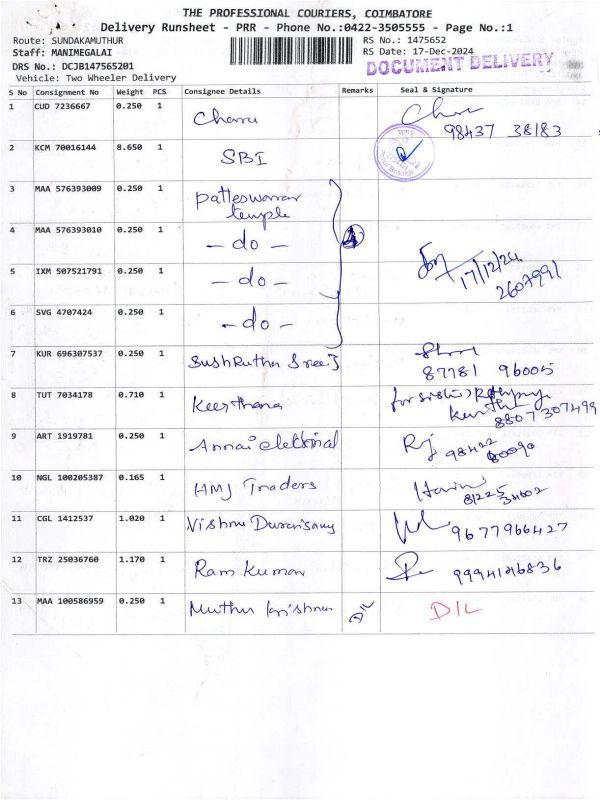 THE PROFESSIONAL COURIERS, COIMBATORE
Delivery Runsheet - PRR - Phone No.:0422-3505555 - Page No.:1
Route: SUNDAKAMUTHUR RS No.: 1475652
Staff: MANIMEGALAI RS Date: 17-Dec-2024
DRS No.: DCJB147565201 DOCUMENT DELIVERY
Vehicle: Two Wheeler Delivery
S No Consignment No Weight PCS Consignee Details Remarks Seal & Signature
1 CUD 7236667 0.250 1 Charu
98437 38183
2 KCM 70016144 8.650 1 SBI
3 MAA 576393009 0.250 1 Patteswarar
temple
4 MAA 576393010 0.250 1 - do -
5 IXM 507521791 0.250 1 - do - 17/12/24
2607991
6 SVG 4707424 0.250 1 - do -
7 KUR 696307537 0.250 1 Sushrutha Sree.J
87781 96005
8 TUT 7034178 0.710 1 Keerthana for
8807307499
9 ART 1919781 0.250 1 Annai electrical 98422
10 NGL 100205387 0.165 1 HMJ Traders
11 CGL 1412537 1.020 1 Vishnu Duraisamy 9677966427
12 TRZ 25036760 1.170 1 Ram Kumar
13 MAA 100586959 0.250 1 Muthu krishnan D/L D/L